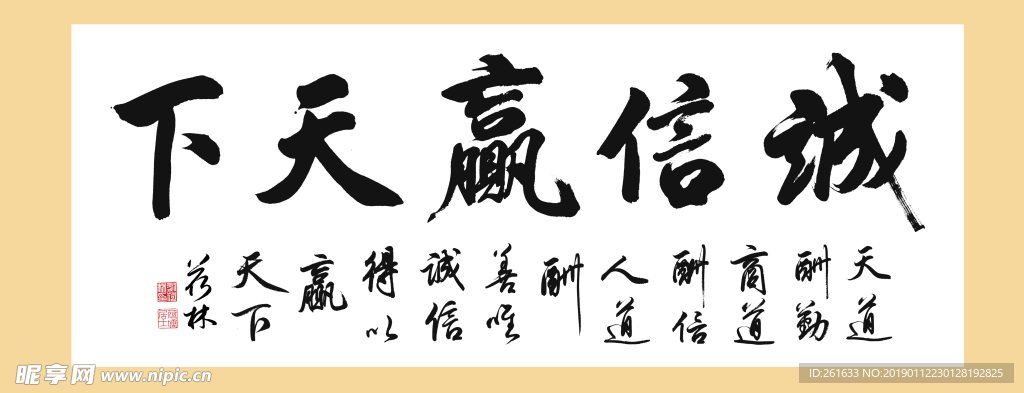 誠信贏天下
天道
酬勤
商道
酬信
人道
酬
善唯
誠信
得以
贏
天下
荷林
昵享网 www.nipic.cn
ID:261633 NO:20190112230128192825